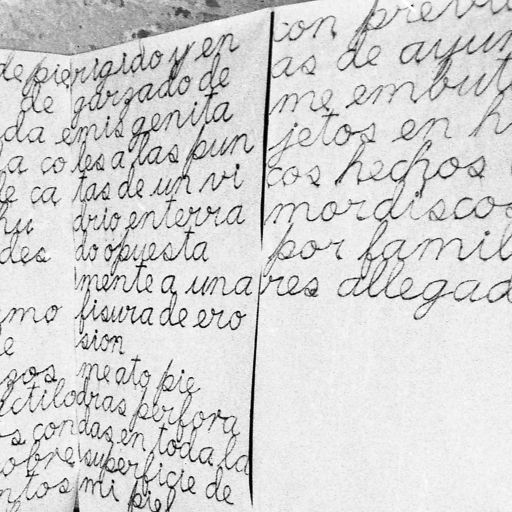 de pie
de
da e
la co
de ca
hu
des
omo
e
nos
ctilo
os con
obre
ntos
rigido y en
garzado de
mis genita
les a las pun
tas de un vi
drio enterra
do opuesta
mente a una
fisura de ero
sion
me ato pie
dras perfora
das en toda la
superficie de
mi piel
con previ
as de ayun
me embut
jetos en h
cos hechos
mordiscos
por famil
res allegad